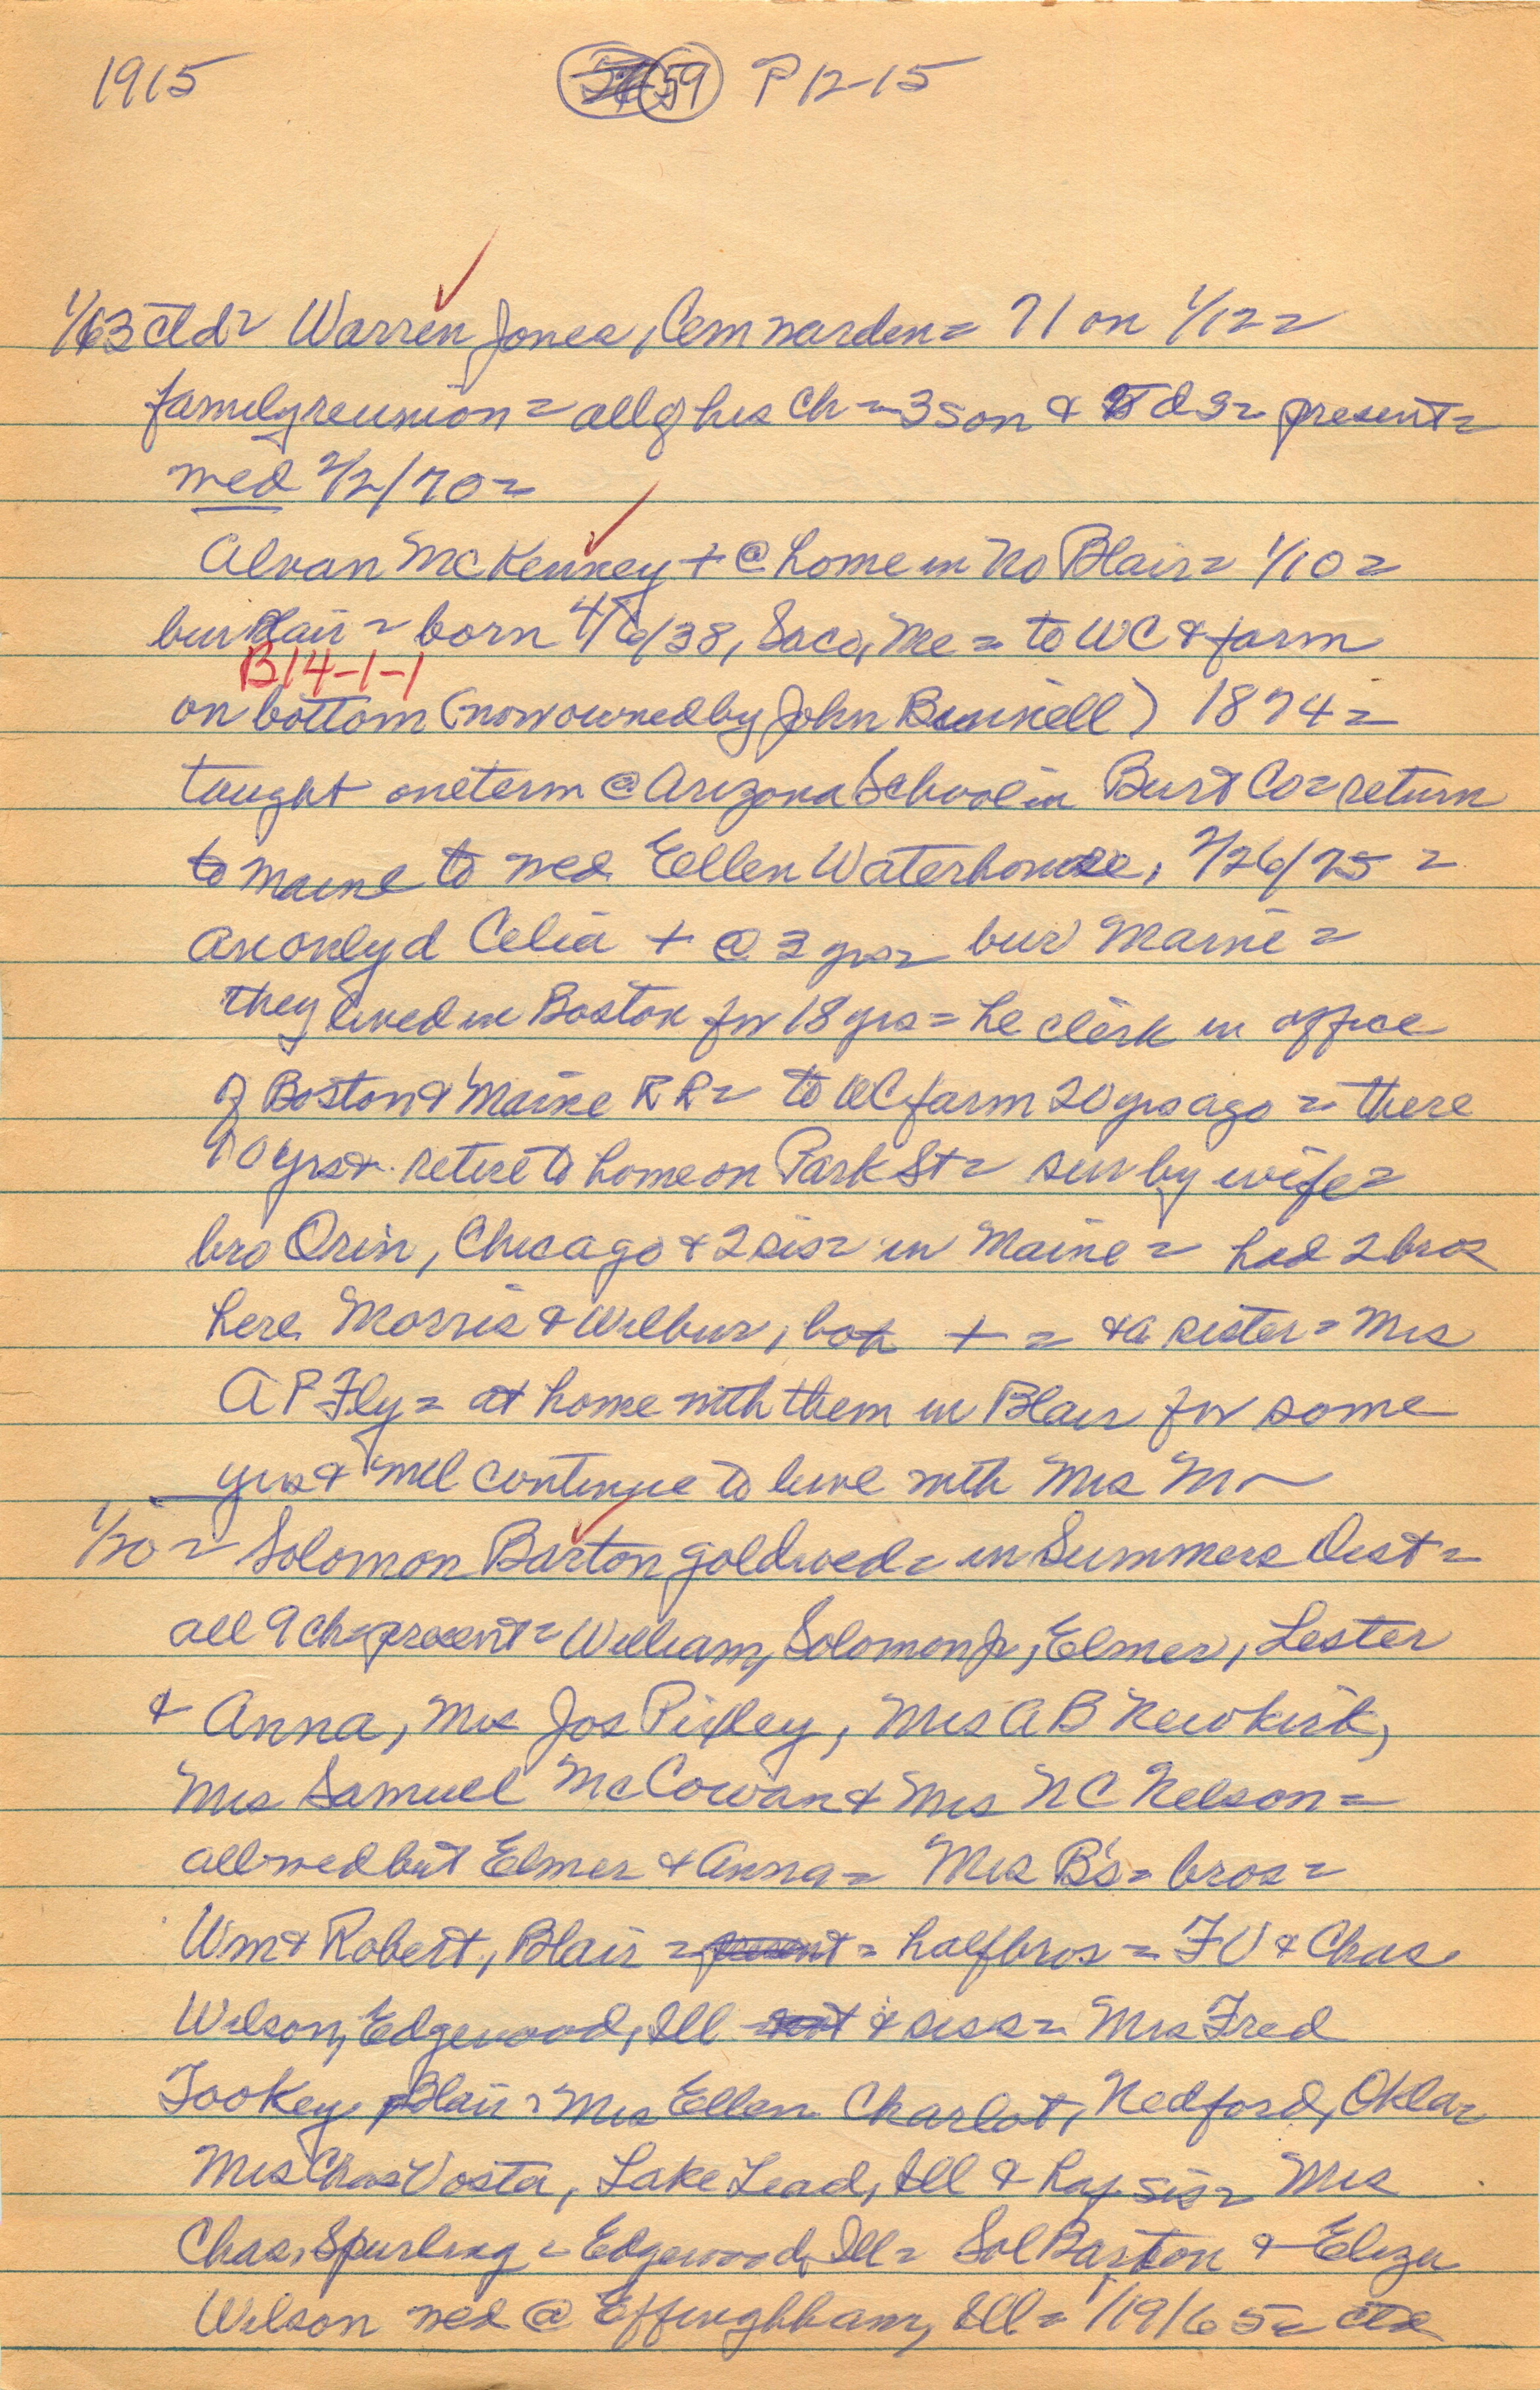 1915 59 P 12-15
1/13 ctd = Warren Jones, Cem warden = 71 on 1/12 =
family reunion = all of his ch = 3 son & 5 ds = present =
wed 2/2/70 =
Alvan McKenney + @ home in No Blair = 1/10 =
bur Blair = born 4/6/38, Saco, Me = to WC & farm
B14-1-1
on bottom (now owned by John Bunnell) 1874 =
taught one term @ Arizona School in Burt Co = return
to Maine to wed Ellen Waterhouse, 2/26/75 =
an only d Celia + @ 3 yrs = bur Maine =
they lived in Boston for 18 yrs = he clerk in office
of Boston & Maine RR = to WC farm 20 yrs ago = there
10 yrs & retire to home on Park St = sur by wife =
bro Orin, Chicago & 2 sis = in Maine = had 2 bros
here Morris & Wilbur, both + = & a sister = Mrs
A P Fly = at home with them in Blair for some
yrs & will continue to live with Mrs M =
1/20 = Solomon Barton gold wed = in Summers Dist =
all 9 ch = present = William, Solomon Jr, Elmer, Lester
& Anna, Mrs Jos Pixley, Mrs A B Newkirk,
Mrs Samuel McCowan & Mrs N C Nelson =
all wed but Elmer & Anna = Mrs B's = bros =
Wm & Robert, Blair = present = half bros = F V & Chas
Wilson, Edgewood, Ill & siss = Mrs Fred
Tookey, Blair = Mrs Ellen Charlot, Nedford, Okla =
Mrs Chas Vosta, Lake Lead, Ill & half sis = Mrs
Chas. Spurling = Edgewood, Ill = Sol Barton & Eliza
Wilson wed @ Effinghham, Ill = 1/19/65 = ctd